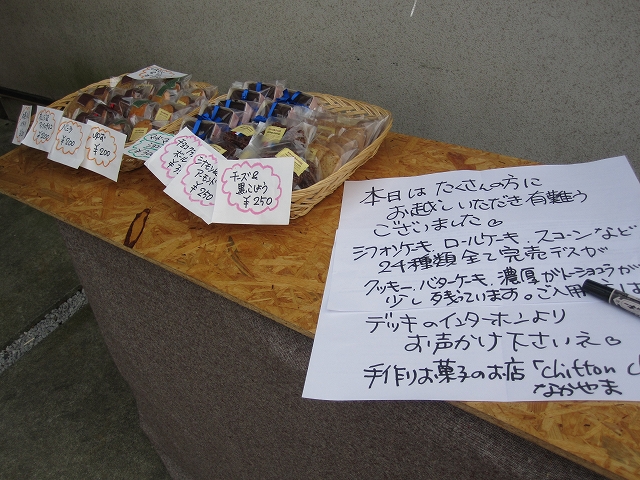 チーズ&
黒こしょう
¥250
シナモン&
アーモンド
¥250
チョコチップ
ボール
ゆず
¥200
¥200
¥200
本日は たくさんの方に
お越しいただき有難う
ございました
シフォンケーキ、ロールケーキ、スコーンなど
24種類全て完売デスが
クッキー、バターケーキ、濃厚ガトーショコラが
少し残っています。ご入用
デッキのインターホンより
お声かけ下さいネ
手作りお菓子のお店「chiffon
なかやま